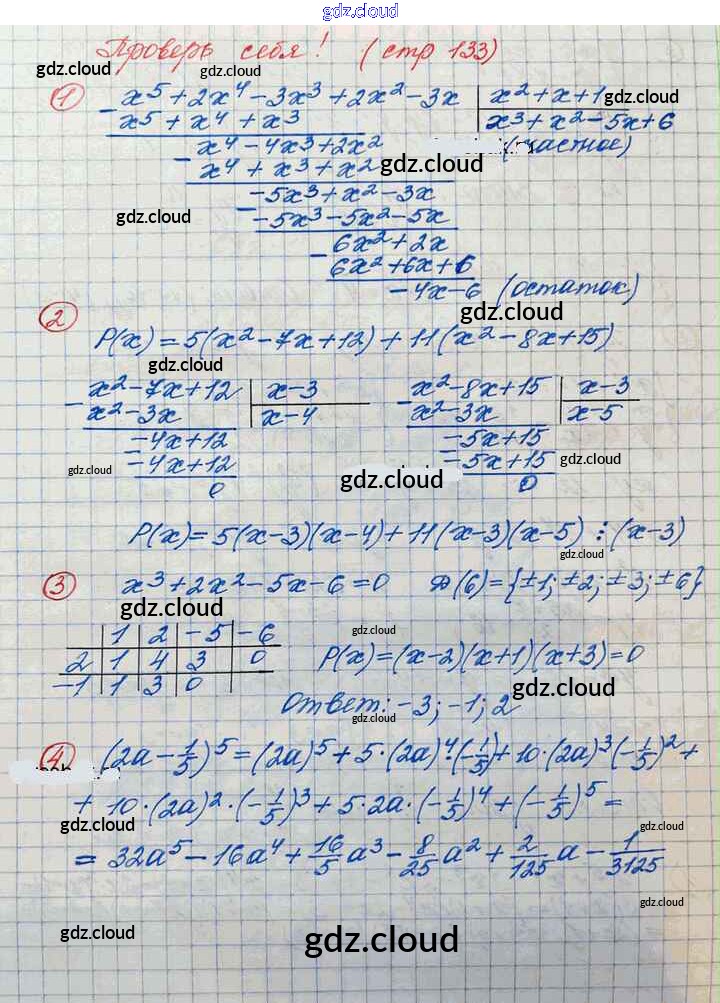 gdz.cloud
Проверь себя! (стр 133)
gdz.cloud gdz.cloud
① x⁵+2x⁴-3x³+2x²-3x | x²+x+1
gdz.cloud
- x⁵+x⁴+x³ | x³+x²-5x+6
x⁴-4x³+2x² (частное)
- x⁴+x³+x²
gdz.cloud
-5x³+x²-3x
gdz.cloud
- -5x³-5x²-5x
6x²+2x
- 6x²+6x+6
-4x-6 (остаток)
② gdz.cloud
P(x)=5(x²-7x+12)+11(x²-8x+15)
gdz.cloud
x²-7x+12 | x-3 x²-8x+15 | x-3
- x²-3x | x-4 - x²-3x | x-5
-4x+12 -5x+15
gdz.cloud - -4x+12 - -5x+15 gdz.cloud
gdz.cloud
0 0
P(x)=5(x-3)(x-4)+11(x-3)(x-5) ⋮ (x-3)
gdz.cloud
③ x³+2x²-5x-6=0 D(6)={±1;±2;±3;±6}
gdz.cloud
| 1 | 2 | -5 | -6
gdz.cloud
2 | 1 | 4 | 3 | 0 P(x)=(x-2)(x+1)(x+3)=0
-1 | 1 | 3 | 0
gdz.cloud
Ответ: -3; -1; 2
gdz.cloud
④ (2a-1/5)⁵=(2a)⁵+5·(2a)⁴·(-1/5)+10·(2a)³(-1/5)²+
+10·(2a)²·(-1/5)³+5·2a·(-1/5)⁴+(-1/5)⁵=
gdz.cloud gdz.cloud
=32a⁵-16a⁴+16/5a³-8/25a²+2/125a-1/3125
gdz.cloud
gdz.cloud gdz.cloud